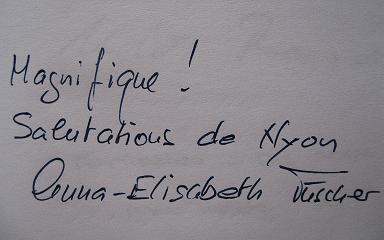 Magnifique !
Salutations de Nyon
Anna-Elisabeth